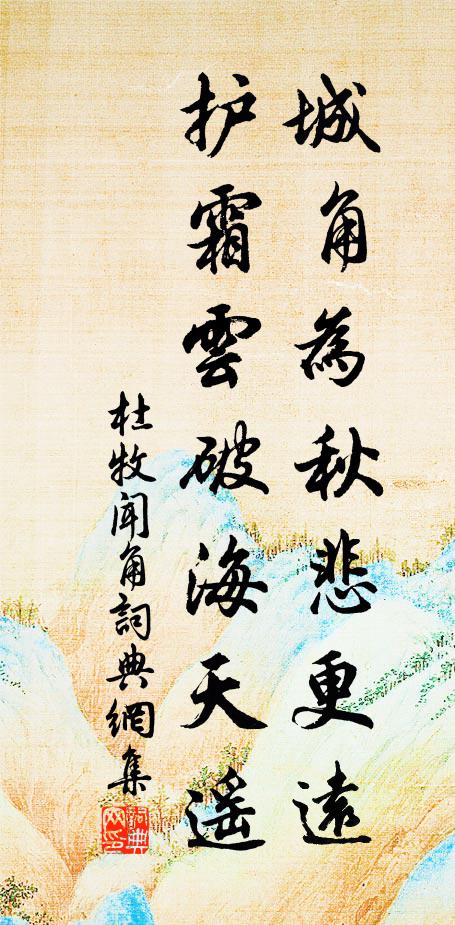 城角為秋悲更遠
护霜雲破海天遥
杜牧闻角詞典網集
詞典網印